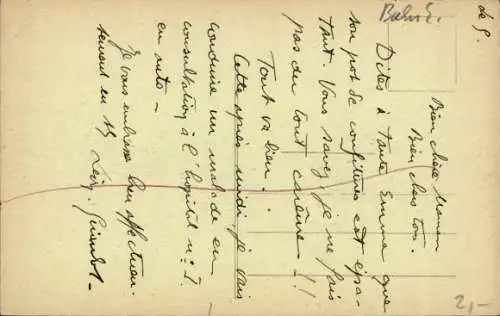 Bien chère Maman
Bien chers tous.
Dites à Tante Emma que
son pot de confitures est épa-
tant. Vous savez, je ne fais
pas du tout carême - !!
Tout va bien.
Cette après midi je vais
conduire un malade en
consultation à l'hôpital n° 7.
en auto -
Je vous embrasse bien affectueu-
sement en
de G.
2,-